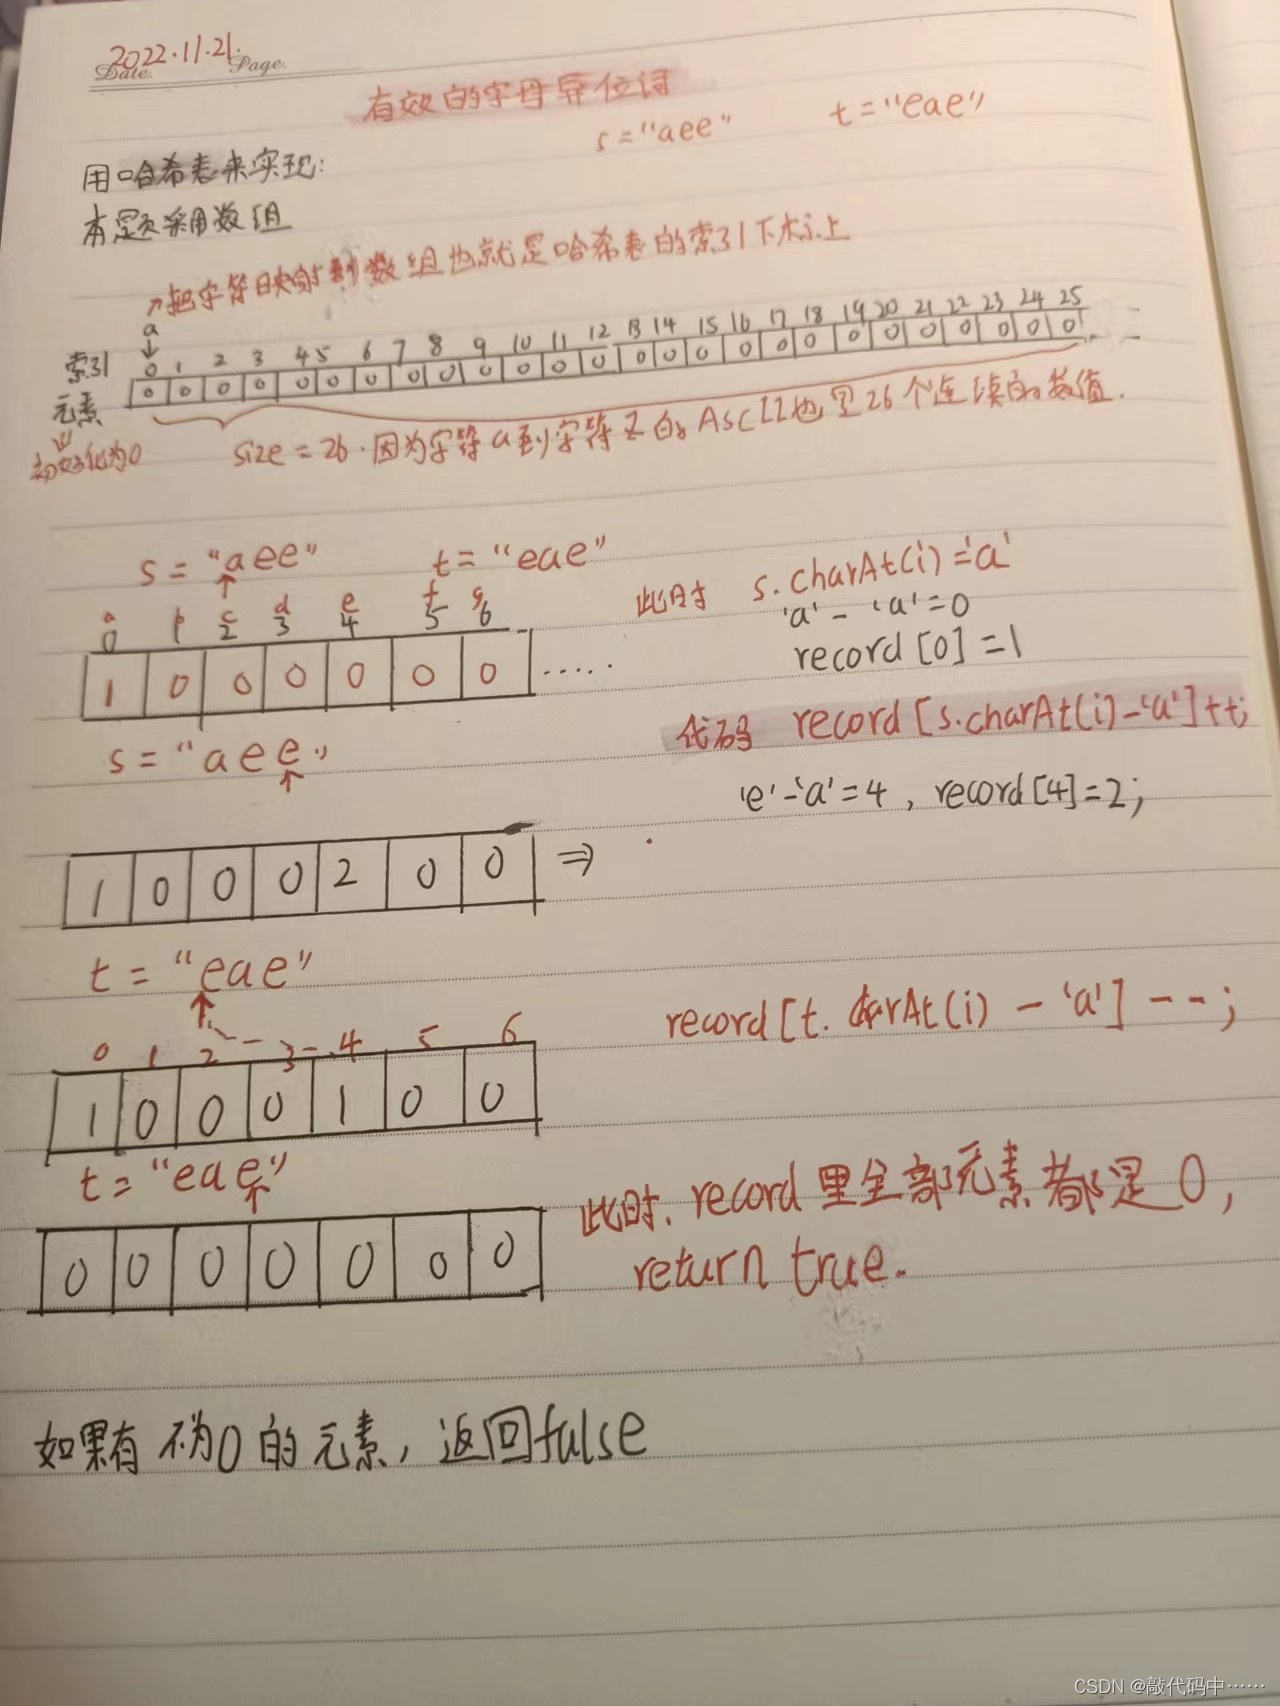 2022.11.21.
Date. Page.
有效的字母异位词
s = "aee" t = "eae"
用哈希表来实现:
本题采用数组
↗把字符映射到数组也就是哈希表的索引下标上
a
↓
索引 0 1 2 3 4 5 6 7 8 9 10 11 12 13 14 15 16 17 18 19 20 21 22 23 24 25
元素 0 0 0 0 0 0 0 0 0 0 0 0 0 0 0 0 0 0 0 0 0 0 0 0 0 0
↓
初始化为0
size = 26. 因为字符a到字符z的ASCII也是26个连续的数值.
s = "aee" t = "eae"
此时 s.charAt(i)='a'
'a' - 'a' = 0
a c d e f g
0 1 2 3 4 5 6
record [0] = 1
1 0 0 0 0 0 0 .....
代码 record [s.charAt(i)-'a']++;
s = "aee"
'e'-'a'=4, record[4]=2;
1 0 0 0 2 0 0 ⇒
t = "eae"
record[t.charAt(i) - 'a'] --;
0 1 2 3 4 5 6
1 0 0 0 1 0 0
t = "eae"
此时. record 里全部元素都是0,
0 0 0 0 0 0 0
return true.
如果有不为0的元素, 返回false
CSDN @敲代码中……